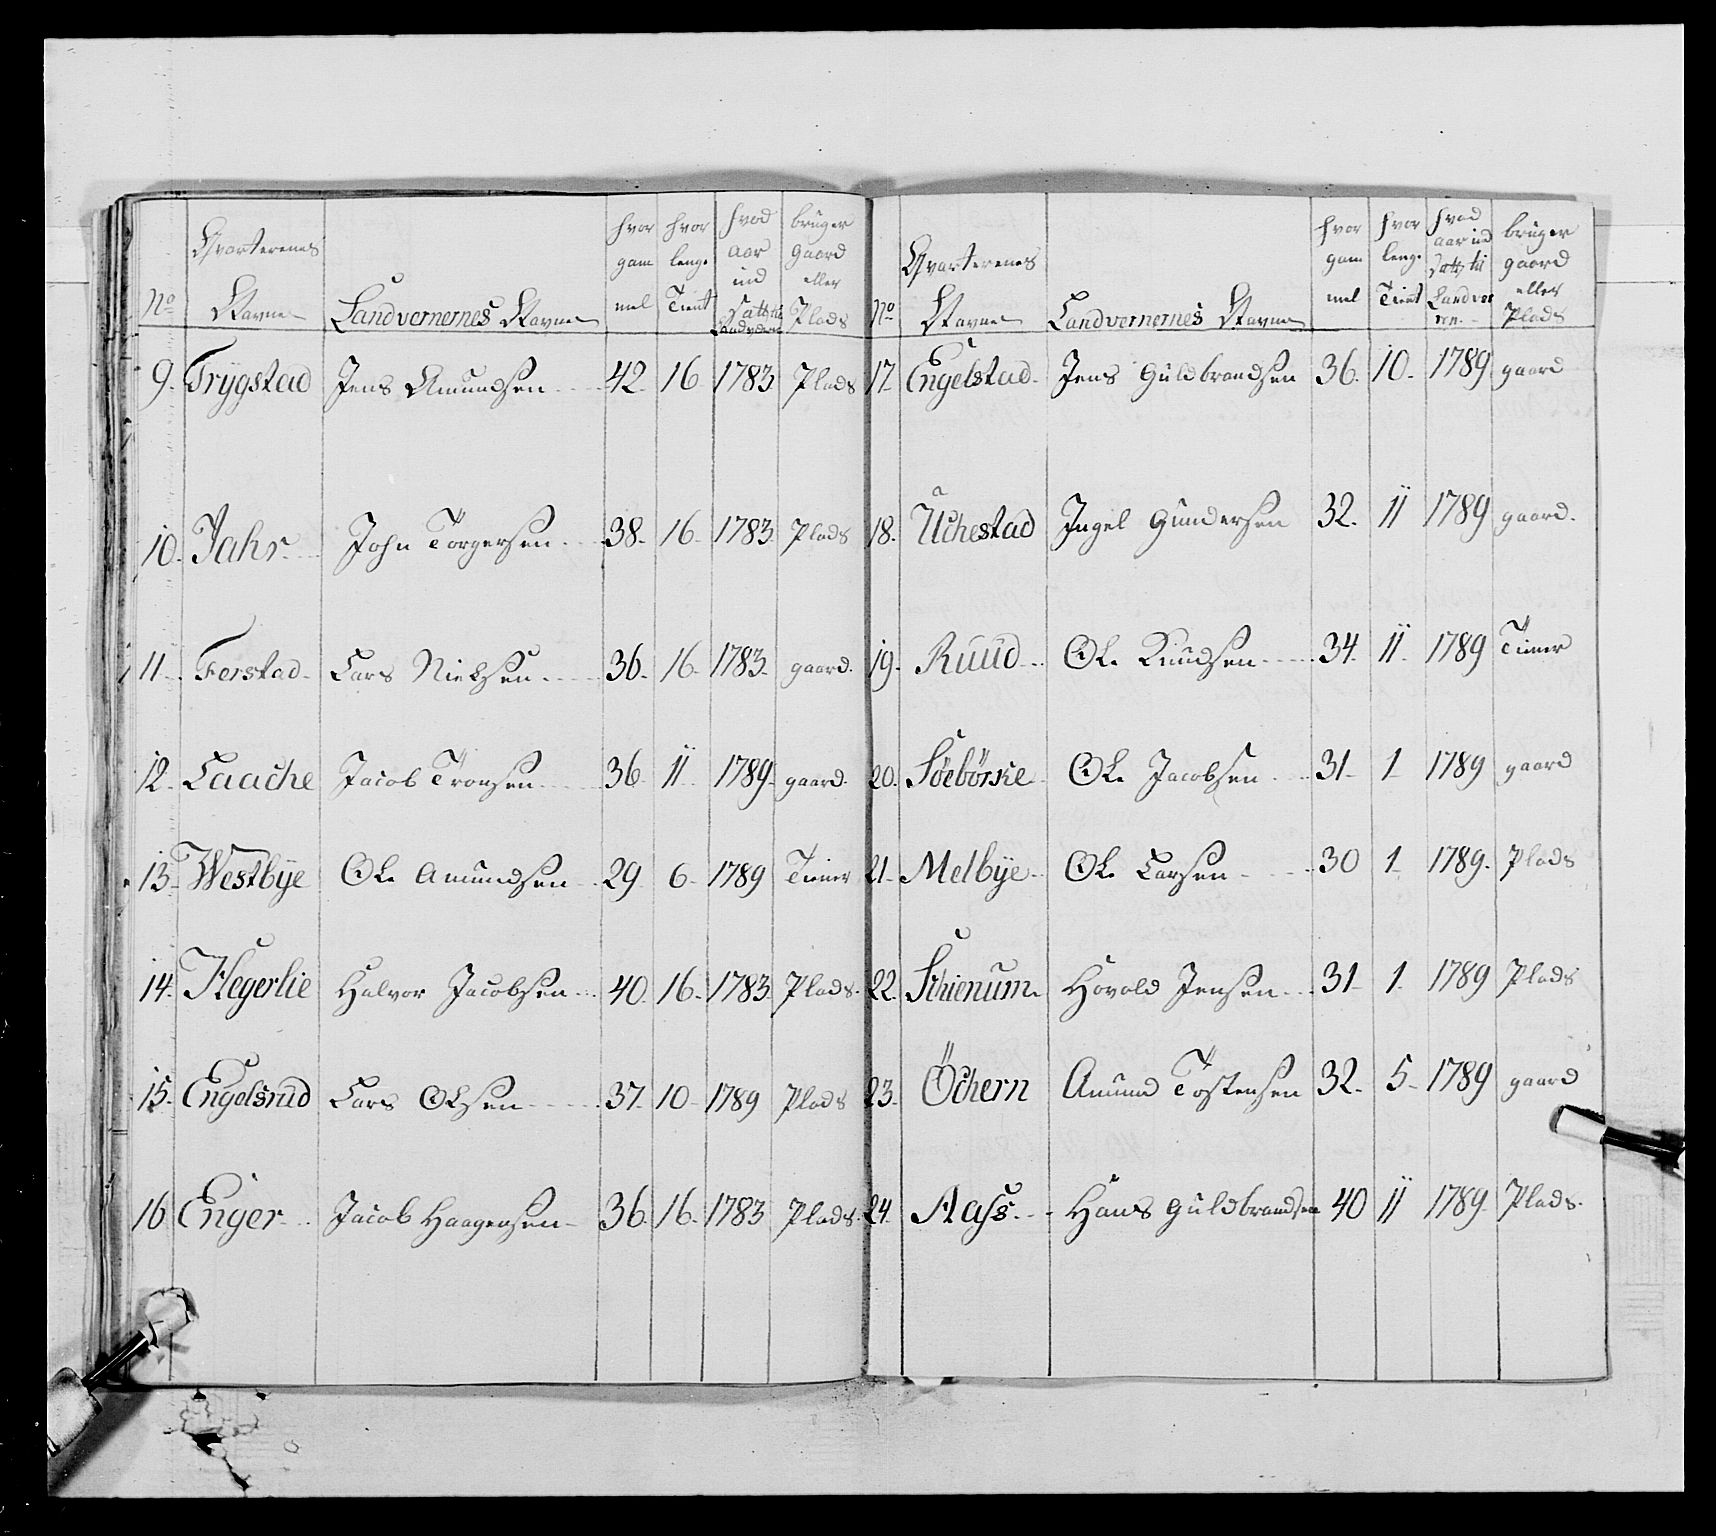 No Qvarterenes Navne Landvernernes Navne hvor gam mel hvor lenge Tient hvad aar ind satt til Landvern bruger Gaard eller Plads
9. Trygstad Jens Amundsen 42 16 1783 Plads
10. Jahr John Torgersen 38. 16 1783 Plads
11. Ferstad Lars Nielsen 36. 16 1783. gaard.
12. Laache Jacob Tronsen 36 11 1789. gaard.
13. Westbÿe Ole Amundsen 29 6 1789 Tiener
14. Hegerlie Halvor Jacobsen 40 16 1783 Plads.
15. Engelsrud Lars Olsen 37. 10 1789 Plads
16 Enger Jacob Haagensen 36 16 1783 Plads.
No Qvarterenes Navne Landvernernes Navne hvor gam mel hvor lenge Tient hvad aar ind satt til Landver ren bruger gaard eller Plads
17. Engelstad Jens Guldbrandsen 36. 10 1789 gaard
18. Uchestad Ingel Gundersen 32. 11 1789 gaard.
19. Ruud Ole Knudsen 34 11 1789 Tiener
20. Ole Jacobsen 31 1 1789 gaard
21 Melbÿe Ole Larsen 30 1 1789. Plads
22. Schienum Hovald Jensen 31 1 1789 Plads
23. Öchern Amund Tostensen 32. 5 1789 gaard
24. Aass Hans Guldbrandsen 40 11 1789 Plads.